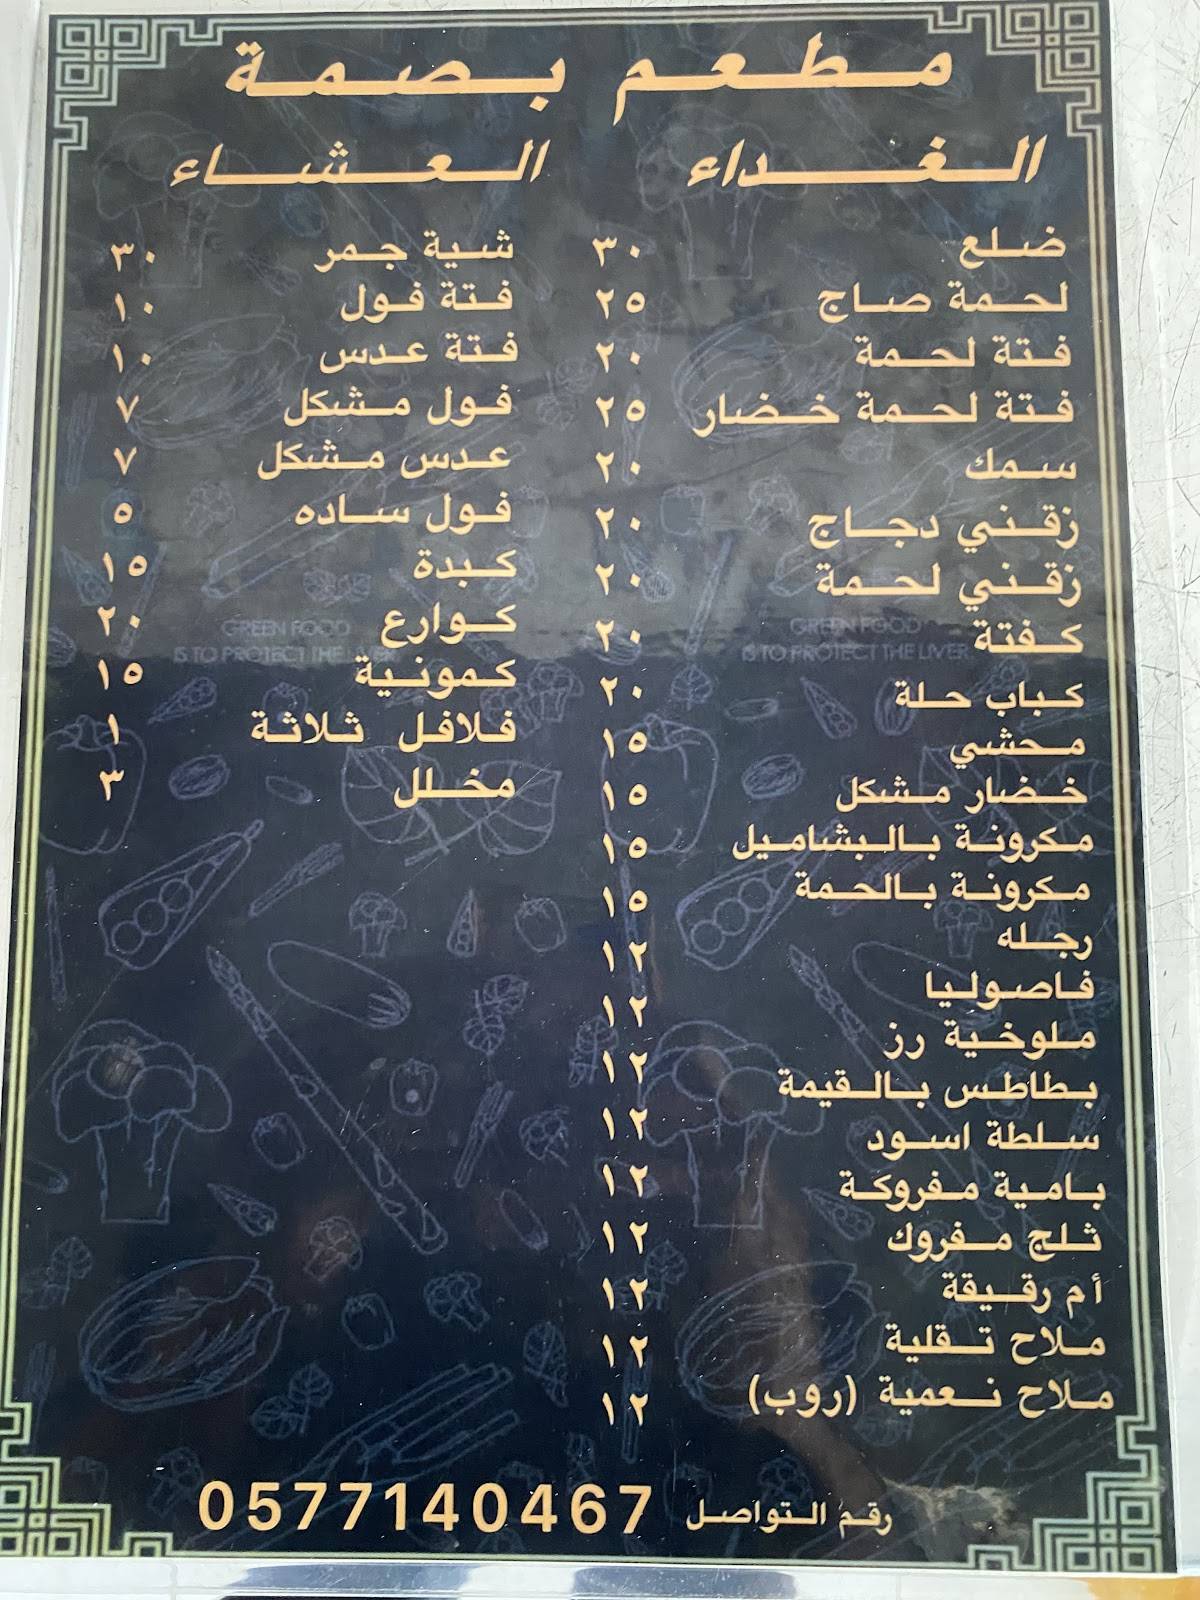 مطعم بصمة
الغداء
ضلع ٣٠
لحمة صاج ٢٥
فتة لحمة ٢٠
فتة لحمة خضار ٢٥
سمك ٢٠
زقني دجاج ٢٠
زقني لحمة ٢٠
كفتة ٢٠
كباب حلة ٢٠
محشي ١٥
خضار مشكل ١٥
مكرونة بالبشاميل ١٥
مكرونة بالحمة ١٥
رجله ١٢
فاصوليا ١٢
ملوخية رز ١٢
بطاطس بالقيمة ١٢
سلطة اسود ١٢
بامية مفروكة ١٢
ثلج مفروك ١٢
أم رقيقة ١٢
ملاح تقلية ١٢
ملاح نعمية (روب)
العشاء
شية جمر ٣٠
فتة فول ١٠
فتة عدس ١٠
فول مشكل ٧
عدس مشكل ٧
فول ساده ٥
كبدة ١٥
كوارع ٢٠
كمونية ١٥
فلافل ثلاثة ١
مخلل ٣
GREEN FOOD
IS TO PROTECT THE LIVER
GREEN FOOD
IS TO PROTECT THE LIVER
رقم التواصل 0577140467